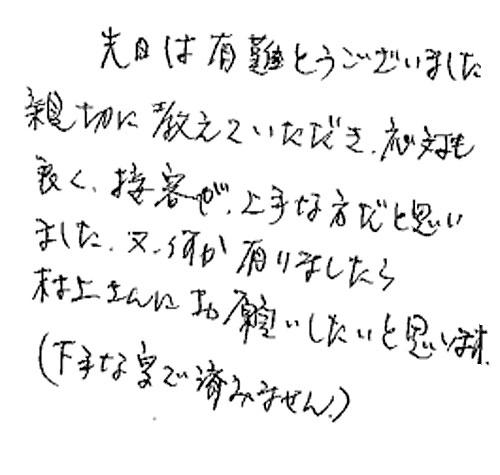 先日は有難とうございました
親切に教えていただき、応対も
良く、接客が、上手な方だと思い
ました。又、何か有りましたら
村上さんにお願いしたいと思います。
(下手な字で済みません。)